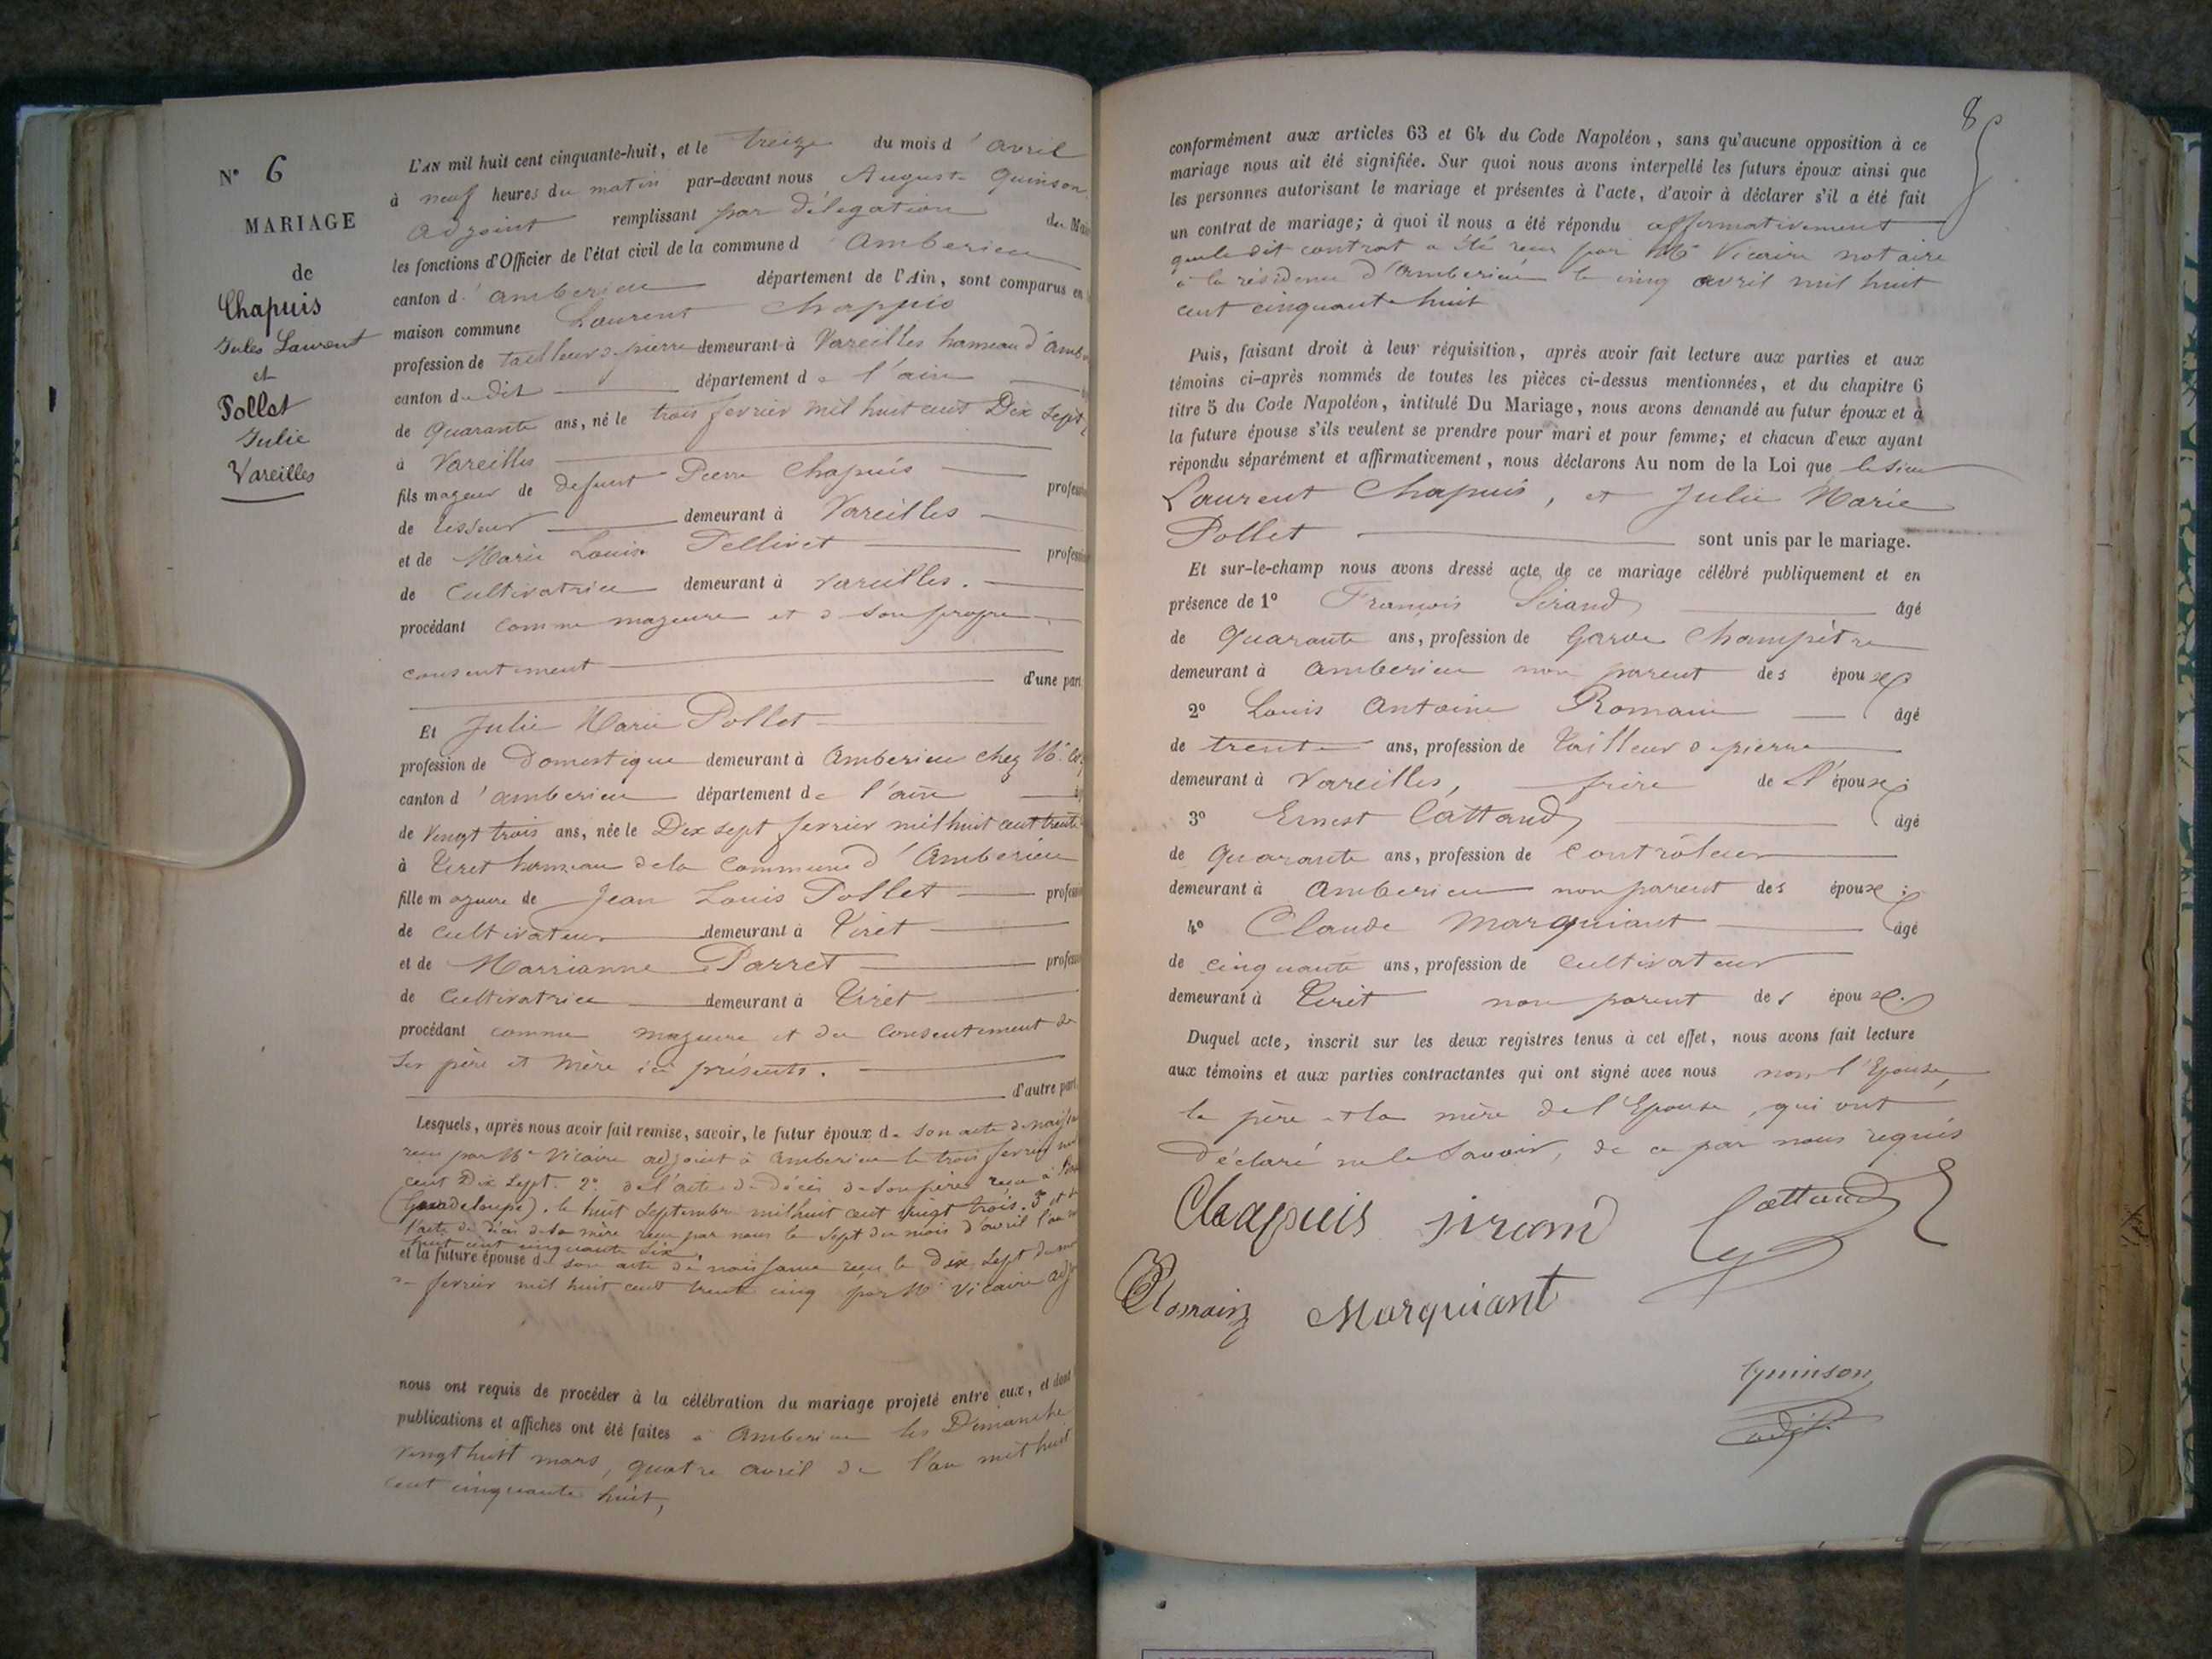 N° 6
MARIAGE
de
Chapuis
Jules Laurent
et
Pollet
Julie
Vareilles
L'AN mil huit cent cinquante-huit, et le treize du mois d'avril
à neuf heures du matin par-devant nous Auguste Quinson
adjoint remplissant par délégation du Mai
les fonctions d'Officier de l'état civil de la commune d Amberieu
canton d'amberieu département de l'Ain, sont comparus en
maison commune Laurent Chappuis
profession de tailleur de pierre demeurant à Vareilles hameau d'amb
canton du dit département de l'ain
de quarante ans, né le trois fevrier mil huit cent Dix sept
à Vareilles
fils majeur de defunt Pierre Chapuis profession
de tisseur demeurant à Vareilles
et de Marie Louise Pellivet profession
de Cultivatrice demeurant à vareilles.
procédant comme majeure et de son propre
consentement
d'une part,
Et Julie Marie Pollet
profession de Domestique demeurant à Amberieu chez Mr
canton d'amberieu département de l'ain
de vingt trois ans, née le Dix sept fevrier mil huit cent trente
à Tiret hameau de la Commune d'Amberieu
fille majeure de Jean Louis Pollet profess
de cultivateur demeurant à Tiret
et de Marrianne Parret profess
de Cultivatrice demeurant à Tiret
procédant comme majeure et du Consentement de
ses père et mère ici présents.
d'autre part.
Lesquels, après nous avoir fait remise, savoir, le futur époux de son acte de naiss
recu par Mr Vicaire adjoint à Amberieu le trois fevrier mil
cent Dix sept. 2° de l'acte de décès de son père recu à
(Guadeloupe). le huit septembre mil huit cent vingt trois. 3° et de
l'acte de décès de la mère recu par nous le sept du mois d'avril l'an
huit cent cinquante six.
et la future épouse de son acte de naissance recu le Dix sept du
de fevrier mil huit cent trente cinq par Mr Vicaire adj
nous ont requis de procéder à la célébration du mariage projeté entre eux, et dont
publications et affiches ont été faites à Amberieu les Dimanche
vingt huit mars, quatre avril de l'an mil huit
cent cinquante huit,
8
conformément aux articles 63 et 64 du Code Napoléon, sans qu'aucune opposition à ce
mariage nous ait été signifiée. Sur quoi nous avons interpellé les futurs époux ainsi que
les personnes autorisant le mariage et présentes à l'acte, d'avoir à déclarer s'il a été fait
un contrat de mariage; à quoi il nous a été répondu affirmativement
que le dit contrat a été recu par Me Vicaire notaire
à la résidence d'Amberieu le cinq avril mil huit
cent cinquante huit
Puis, faisant droit à leur réquisition, après avoir fait lecture aux parties et aux
témoins ci-après nommés de toutes les pièces ci-dessus mentionnées, et du chapitre 6
titre 5 du Code Napoléon, intitulé Du Mariage, nous avons demandé au futur époux et à
la future épouse s'ils veulent se prendre pour mari et pour femme; et chacun d'eux ayant
répondu séparément et affirmativement, nous déclarons Au nom de la Loi que le sieur
Laurent Chapuis, et Julie Marie
Pollet sont unis par le mariage.
Et sur-le-champ nous avons dressé acte de ce mariage célébré publiquement et en
présence de 1° François Sirand âgé
de Quarante ans, profession de Garde Champêtre
demeurant à Amberieu non parent des époux
2° Louis Antoine Romain âgé
de trente ans, profession de tailleur de pierre
demeurant à Vareilles, frère de l'époux;
3° Ernest Cattaud âgé
de Quarante ans, profession de Contrôleur
demeurant à Amberieu non parent des époux;
4° Claude Marquiant âgé
de cinquante ans, profession de Cultivateur
demeurant à Tiret non parent des époux.
Duquel acte, inscrit sur les deux registres tenus à cet effet, nous avons fait lecture
aux témoins et aux parties contractantes qui ont signé avec nous non l'Epouse,
le père et la mère de l'Epouse, qui ont
déclaré ne le savoir, de ce par nous requis
Chapuis Sirand Cattaud
Romain Marquiant
Quinson
adjt